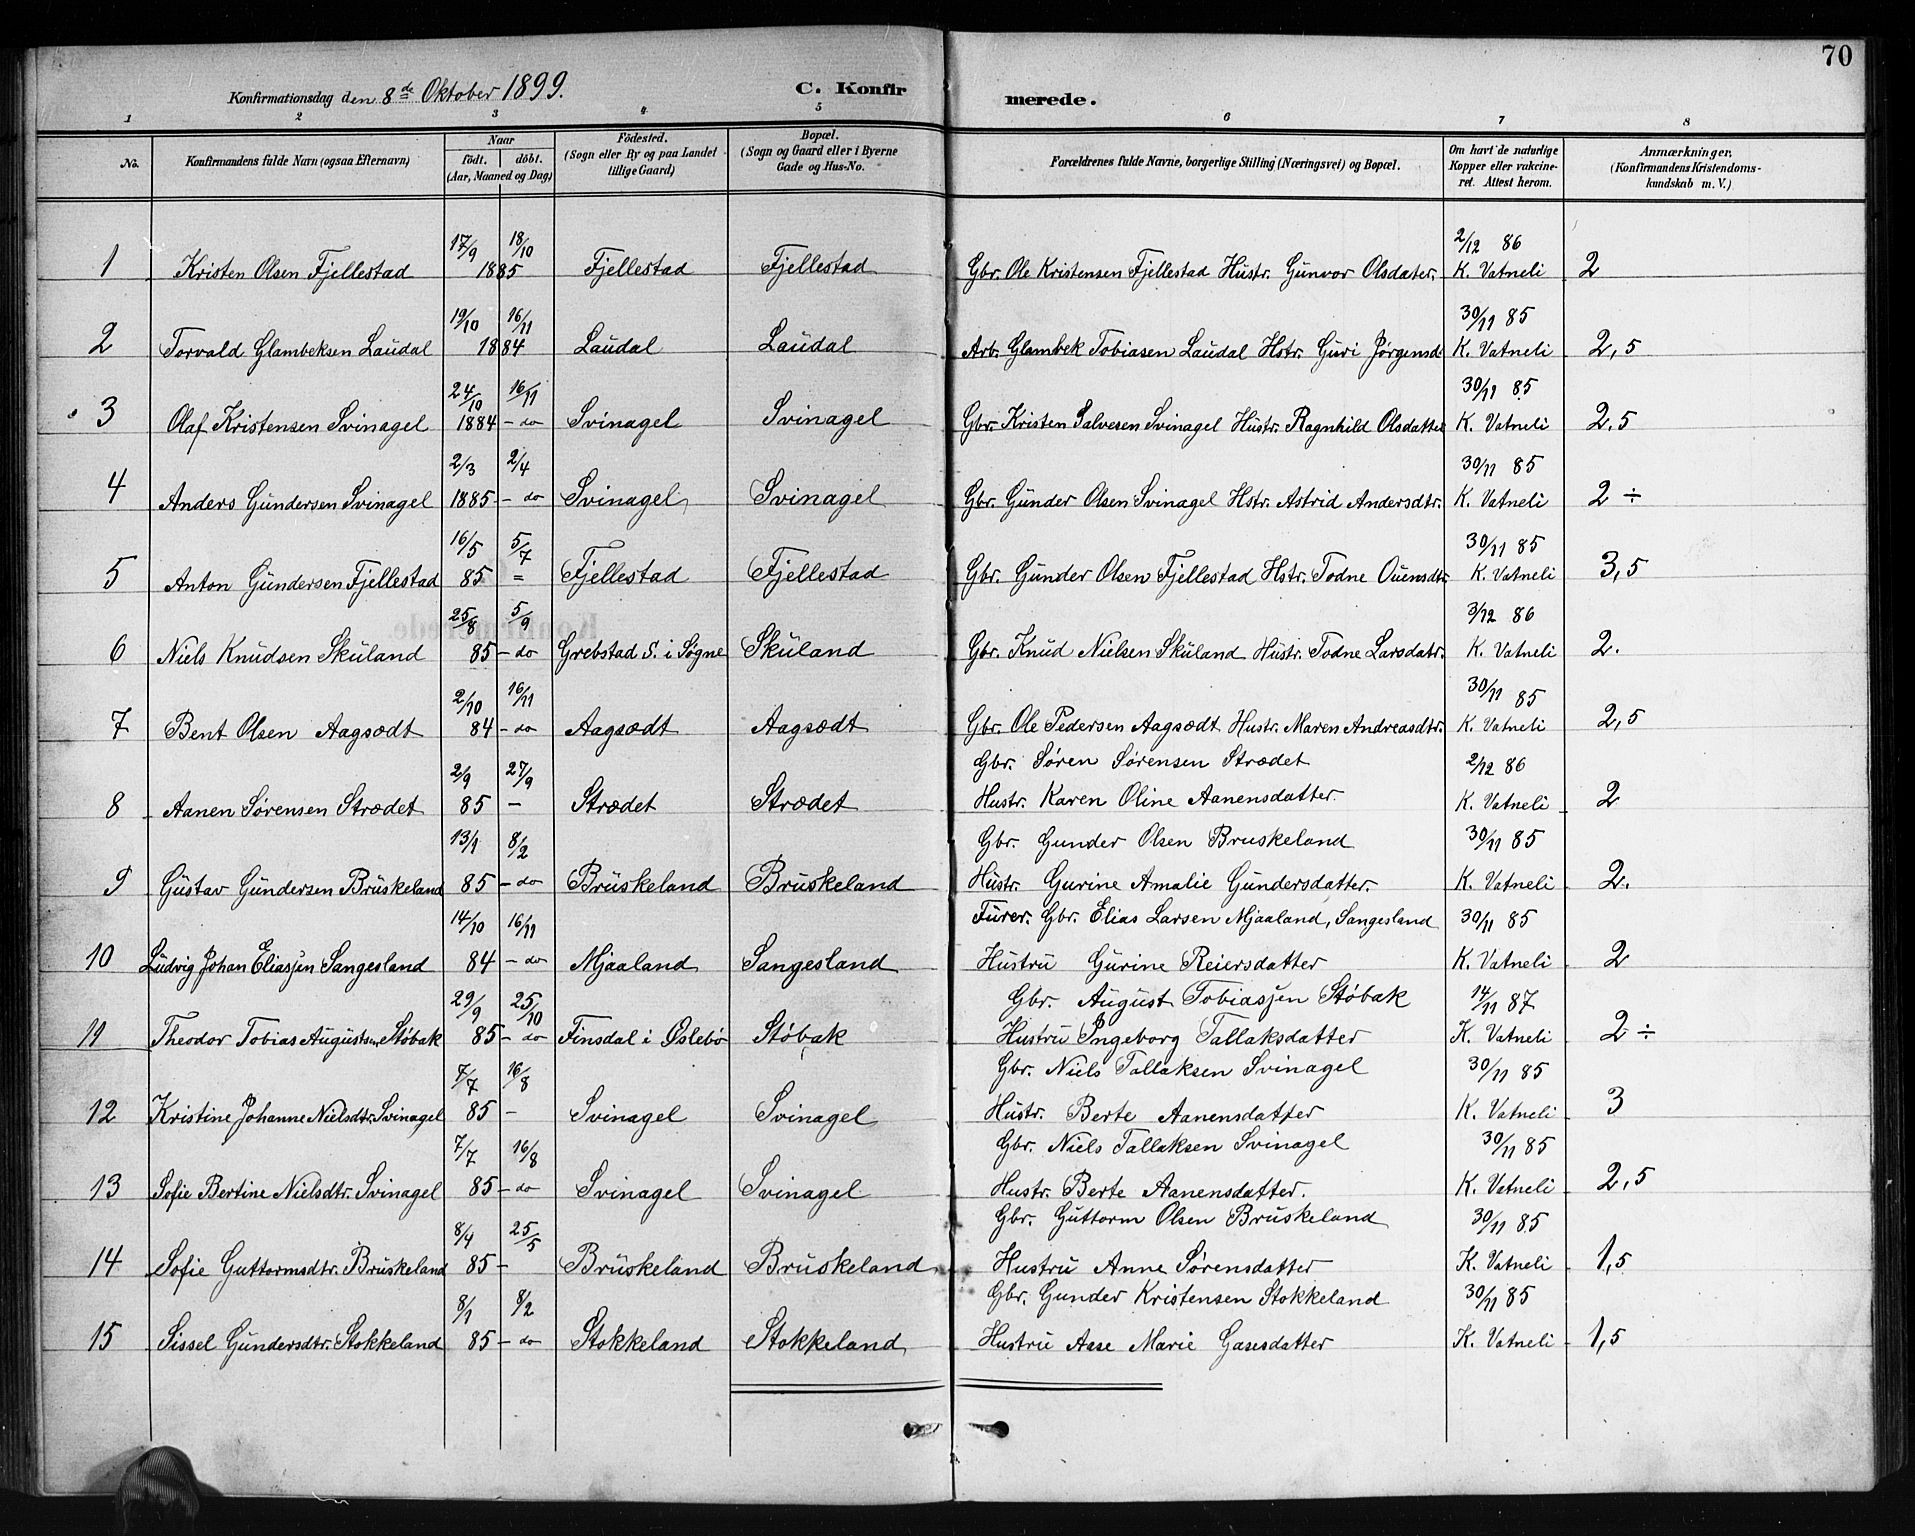 70
Konfirmationsdag den 8de Oktober 1899. C. Konfirmerede.
1 2 3 4 5 6 7 8
No. Konfirmandens fulde Navn (ogsaa Efternavn) Naar födt. döbt. (Aar, Maaned og Dag) Födested. (Sogn eller By og paa Landet tillige Gaard) Bopæl. (Sogn og Gaard eller i Byerne Gade og Hus-No. Forældrenes fulde Navne, borgerlige Stilling (Næringsvei) og Bopæl. Om havt de naturlige Kopper eller vakcineret. Attest herom. Anmærkninger, (Konfirmandens Kristendomskundskab m. V.)
17/9 18/10 2/12 86
1 Kristen Olsen Fjellestad 1885 Fjellestad Fjellestad Gbr. Ole Kristensen Fjellestad Hustr. Gunvor Olsdater. K. Vatneli 2
19/10 16/11 30/11 85
2 Torvald Glambeksen Laudal 1884 Laudal Laudal Arb. Glambek Tobiasen Laudal Hstr. Guri Jørgensd. K. Vatneli 2,5
24/10 16/11 30/11 85
3 Olaf Kristensen Svinagel 1884 - do Svinagel Svinagel Gbr. Kristen Salvesen Svinagel Hustr. Ragnhild Olsdatter K. Vatneli 2,5
2/3 2/4 30/11 85
4 Anders Gundersen Svinagel 1885 - do Svinagel Svinagel Gbr. Gunder Olsen Svinagel Hstr. Astrid Andersdtr. K. Vatneli 2 ÷
16/5 5/7 30/11 85
5 Anton Gundersen Fjellestad 85 = Fjellestad Fjellestad Gbr. Gunder Olsen Fjellestad Hstr. Todne Ouensdtr. K. Vatneli 3,5
25/8 5/9 3/12 86
6 Niels Knudsen Skuland 85 - do Grebstad S. i Søgne Skuland Gbr. Knud Nielsen Skuland Hustr. Todne Larsdatr. K. Vatneli 2.
2/10 16/11 30/11 85
7 Bent Olsen Aagsædt 84 - do Aagsædt Aagsædt Gbr. Ole Pedersen Aagsædt Hustr. Maren Andreasdtr. K. Vatneli 2,5
2/9 27/9 Gbr. Søren Sørensen Strædet 2/12 86
8 Aanen Sørensen Strædet 85 - Strædet Strædet Hustr. Karen Oline Aanensdatter. K. Vatneli 2
13/1 8/2 Gbr. Gunder Olsen Bruskeland 30/11 85
9 Gustav Gundersen Bruskeland 85 - do Bruskeland Bruskeland Hustr. Gurine Amalie Gundersdatter. K. Vatneli 2.
14/10 16/11 Furer. Gbr. Elias Larsen Mjaaland, Sangesland 30/11 85
10 Ludvig Johan Eliassen Sangesland 84 - do Mjaaland Sangesland Hustru Gurine Reiersdatter K. Vatneli 2
29/9 25/10 Gbr. August Tobiassen Støbak 14/11 87
11 Theodor Tobias Augustsen Støbak 85 - do Finsdal i Øslebø Støbak Hustru Ingeborg Tallaksdatter K. Vatneli 2 ÷
7/7 16/8 Gbr. Niels Tallaksen Svinagel 30/11 85
12 Kristine Johanne Nielsdtr. Svinagel 85 - Svinagel Svinagel Hustr. Berte Aanensdatter K. Vatneli 3
7/7 16/8 Gbr. Niels Tallaksen Svinagel 30/11 85
13 Sofie Bertine Nielsdtr. Svinagel 85 - do Svinagel Svinagel Hustr. Berte Aanensdatter. K. Vatneli 2,5
8/4 25/5 Gbr. Guttorm Olsen Bruskeland 30/11 85
14 Sofie Guttormsdtr. Bruskeland 85 - Bruskeland Bruskeland Hustru Anne Sørensdatter K. Vatneli 1,5
8/1 8/2 Gbr. Gunder Kristensen Stokkeland 30/11 85
15 Sissel Gundersdtr. Stokkeland 85 - do Stokkeland Stokkeland Hustru Aase Marie Gasesdatter K. Vatneli 1,5